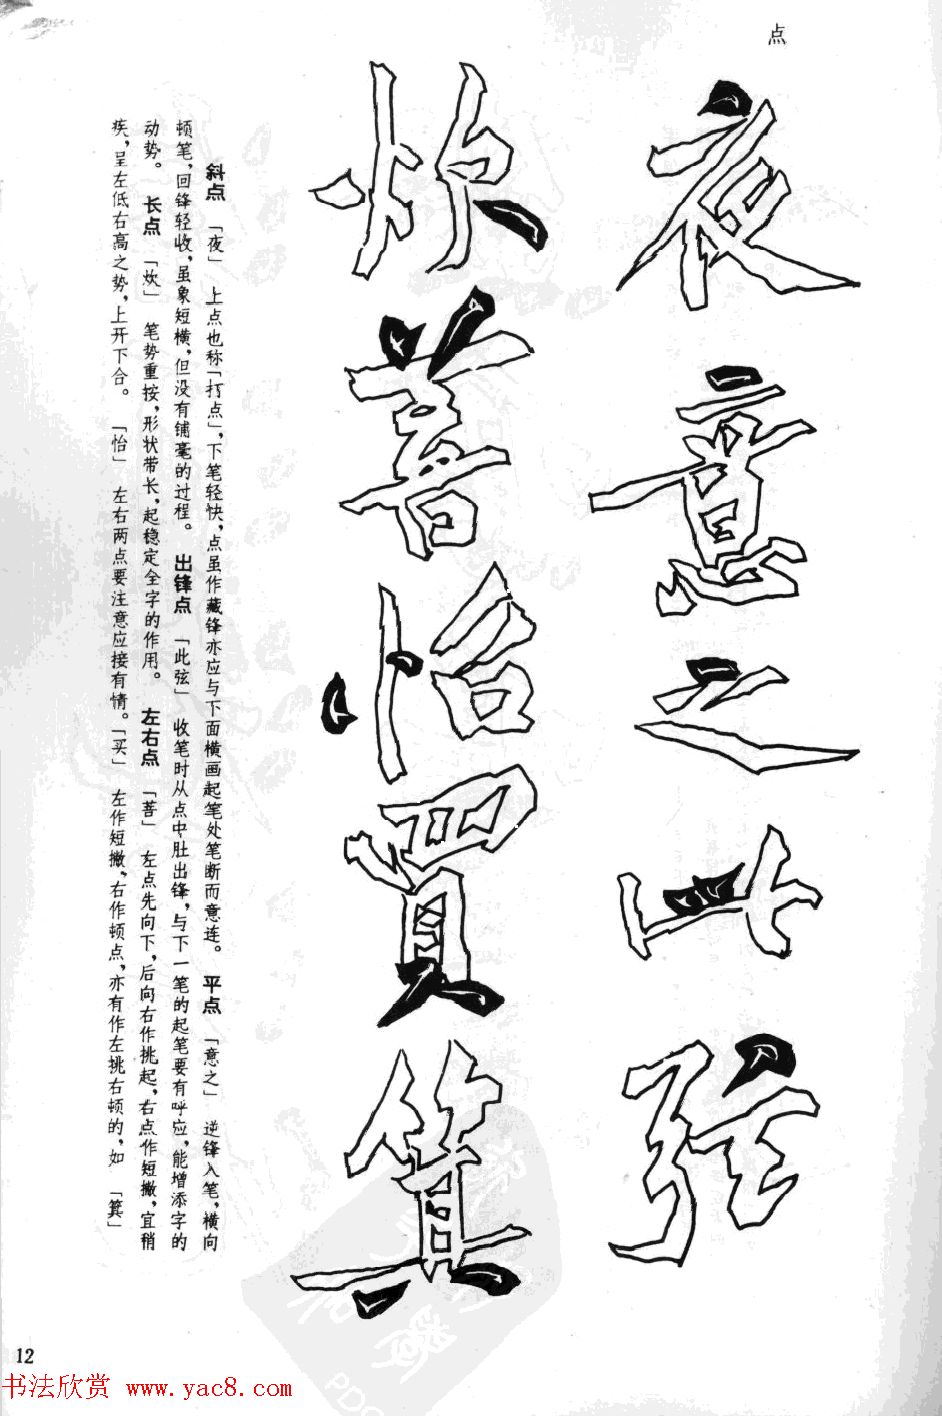 点
夜意之此弦
炊菩怡買箕
斜点 「夜」 上点也称「打点」,下笔轻快,点虽作藏锋亦应与下面横画起笔处笔断而意连。 平点 「意之」 逆锋入笔,横向
顿笔,回锋轻收,虽象短横,但没有铺毫的过程。 出锋点 「此弦」 收笔时从点中肚出锋,与下一笔的起笔要有呼应,能增添字的
动势。 长点 「炊」 笔势重按,形状带长,起稳定全字的作用。 左右点 「菩」 左点先向下,后向右作挑起,右点作短撇,宜稍
疾,呈左低右高之势,上开下合。 「怡」 左右两点要注意应接有情。「买」 左作短撇,右作顿点,亦有作左挑右顿的,如 「箕」
12
书法欣赏 www.yac8.com